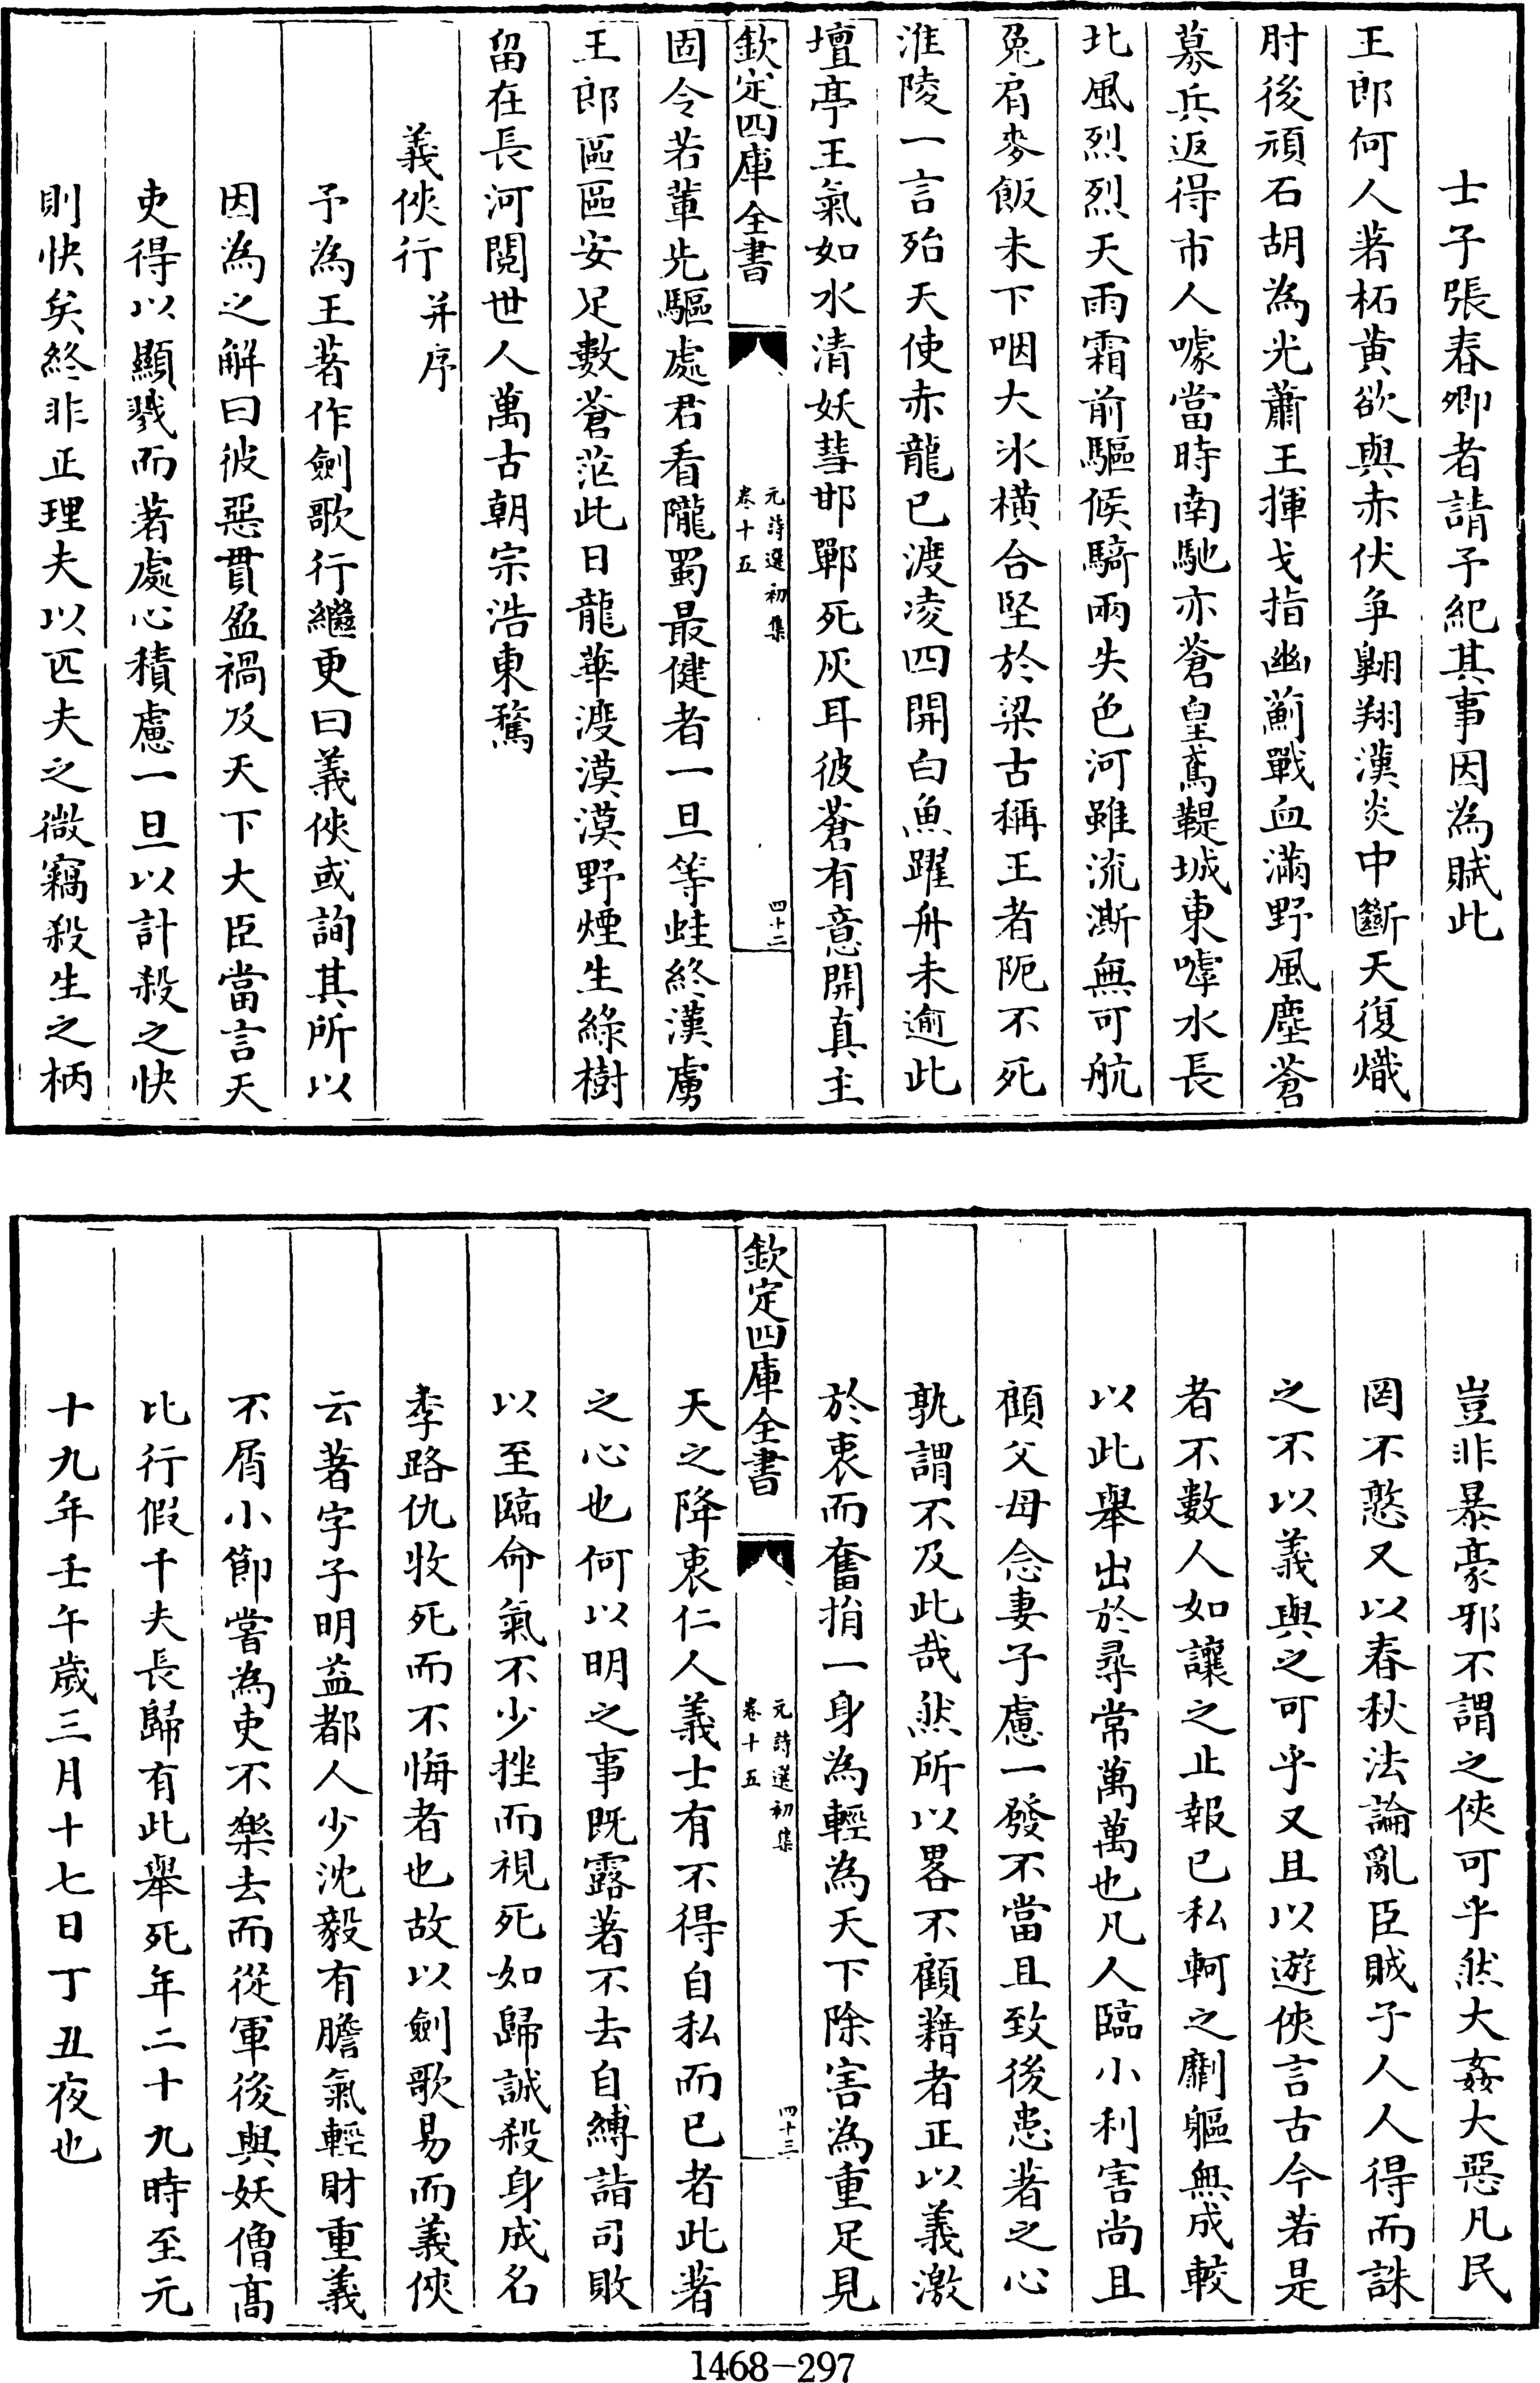 士子張春卿者請予紀其事因為賦此
王郎何人著柘黄欲與赤伏争翺翔漢炎中斷天復熾
肘後頑石胡為光蕭王揮戈指幽薊戰血滿野風塵蒼
募兵返得市人噱當時南馳亦蒼皇鳶鞮城東嘑水長
北風烈烈天雨霜前驅候騎兩失色河雖流澌無可航
兔肩麥飯未下咽大氷横合堅於梁古稱王者阨不死
淮陵一言殆天使赤龍已渡凌四開白魚躍舟未逾此
壇亭王氣如水清妖彗邯鄲死灰耳彼蒼有意開真主
欽定四庫全書
元詩選初集
卷十五
四十二
固令若輩先驅處君看隴蜀最健者一旦等蛙終漢虜
王郎區區安足數蒼茫此日龍華渡漠漠野煙生綠樹
留在長河閱世人萬古朝宗浩東騖
義俠行并序
予為王著作劍歌行繼更曰義俠或詢其所以
因為之解曰彼惡貫盈禍及天下大臣當言天
吏得以顯戮而著處心積慮一旦以計殺之快
則快矣終非正理夫以匹夫之微竊殺生之柄
豈非暴豪邪不謂之俠可乎然大姦大惡凡民
罔不憝又以春秋法論亂臣賊子人人得而誅
之不以義與之可乎又且以遊俠言古今若是
者不數人如讓之止報已私軻之劘軀無成較
以此舉出於尋常萬萬也凡人臨小利害尚且
顧父母念妻子慮一發不當且致後患著之心
孰謂不及此哉然所以畧不顧藉者正以義激
於衷而奮捐一身為輕為天下除害為重足見
欽定四庫全書
元詩選初集
卷十五
四十三
天之降衷仁人義士有不得自私而已者此著
之心也何以明之事既露著不去自縛詣司敗
以至臨命氣不少挫而視死如歸誠殺身成名
季路仇牧死而不悔者也故以劍歌易而義俠
云著字子明益都人少沈毅有膽氣輕財重義
不屑小節嘗為吏不樂去而從軍後與妖僧高
比行假千夫長歸有此舉死年二十九時至元
十九年壬午歲三月十七日丁丑夜也
1468-297